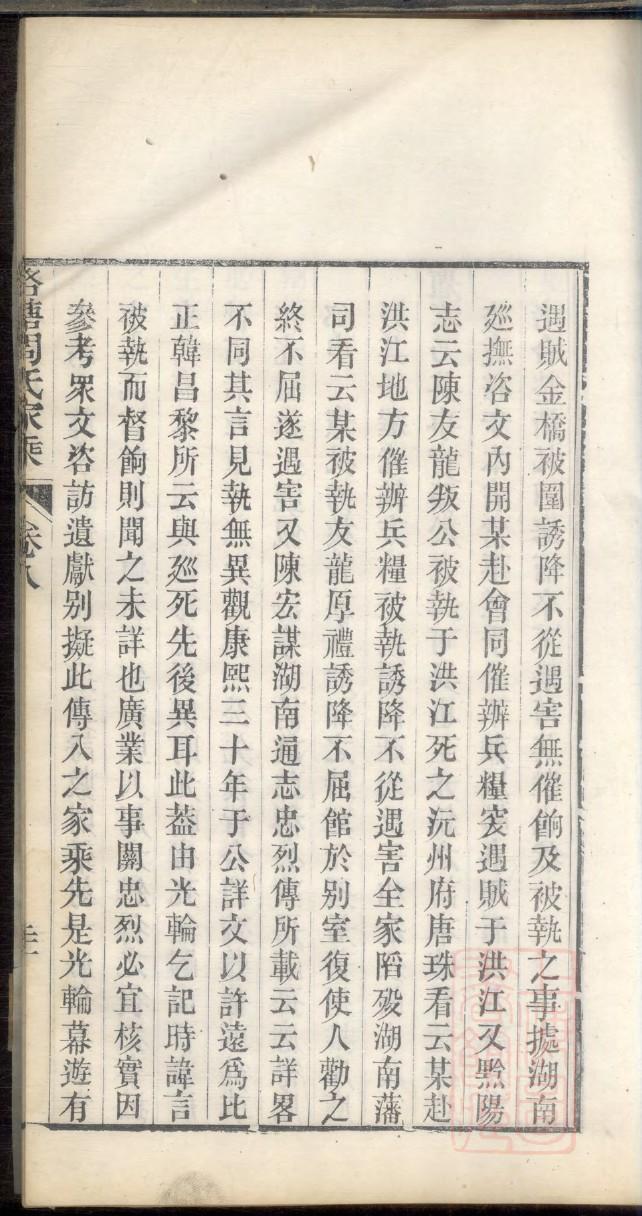 遇賊金橋被圍誘降不從遇害無催餉及被執之事據湖南
廵撫咨文內開某赴會同催辦兵糧突遇賊于洪江又黔陽
志云陳友龍叛公被執于洪江死之沅州府唐珠看云某赴
洪江地方催辦兵糧被執誘降不從遇害全家陷歿湖南藩
司看云某被執友龍厚禮誘降不屈館於别室復使人勸之
終不屈遂遇害又陳宏謀湖南通志忠烈傳所載云云詳畧
不同其言見執無異觀康熙三十年于公詳文以許遠爲比
正韓昌黎所云與廵死先後異耳此葢由光輪乞記時諱言
被執而督餉則聞之未詳也廣業以事關忠烈必宜核實因
參考眾文咨訪遺獻别擬此傳入之家乘先是光輪幕遊有
周氏家乘 卷八